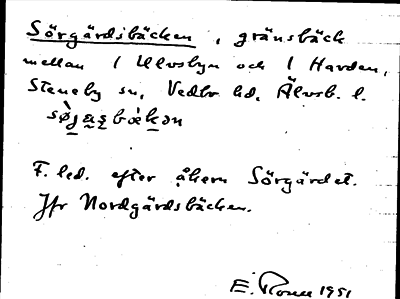 Sörgärdsbäcken, gränsbäck
mellan 1 Ulvsbyn och 1 Harden,
Steneby sn, Vedbo hd, Älvsb. l.
F. led. efter åkern Sörgärdet.
Jfr Nordgärdsbäcken.
E. 1951